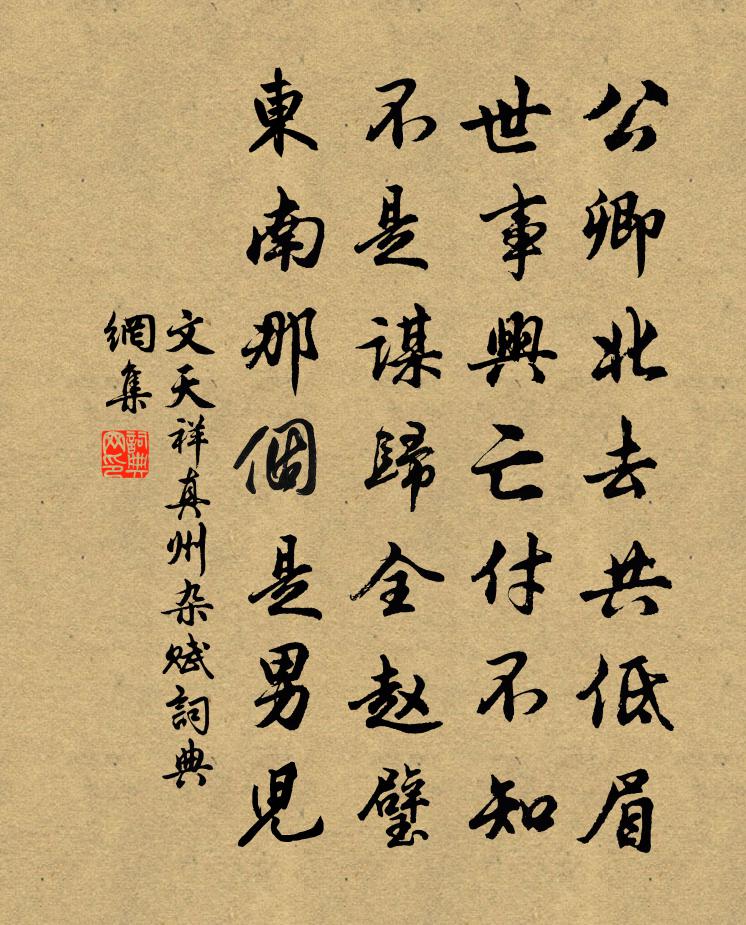 公卿北去共低眉
世事興亡付不知
不是謀歸全赵璧
東南那個是男児
文天祥真州杂赋詞典
網集
詞典
网印